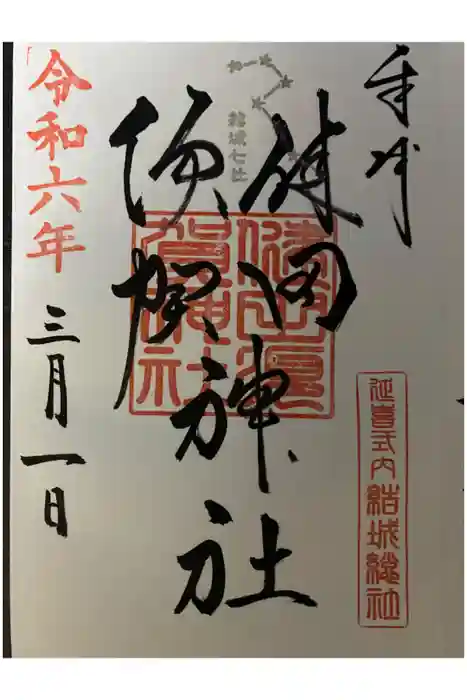 奉拝
結城七社
健田
須賀
神社
健田須
賀神社
延喜式内結城総社
令和六年三月一日